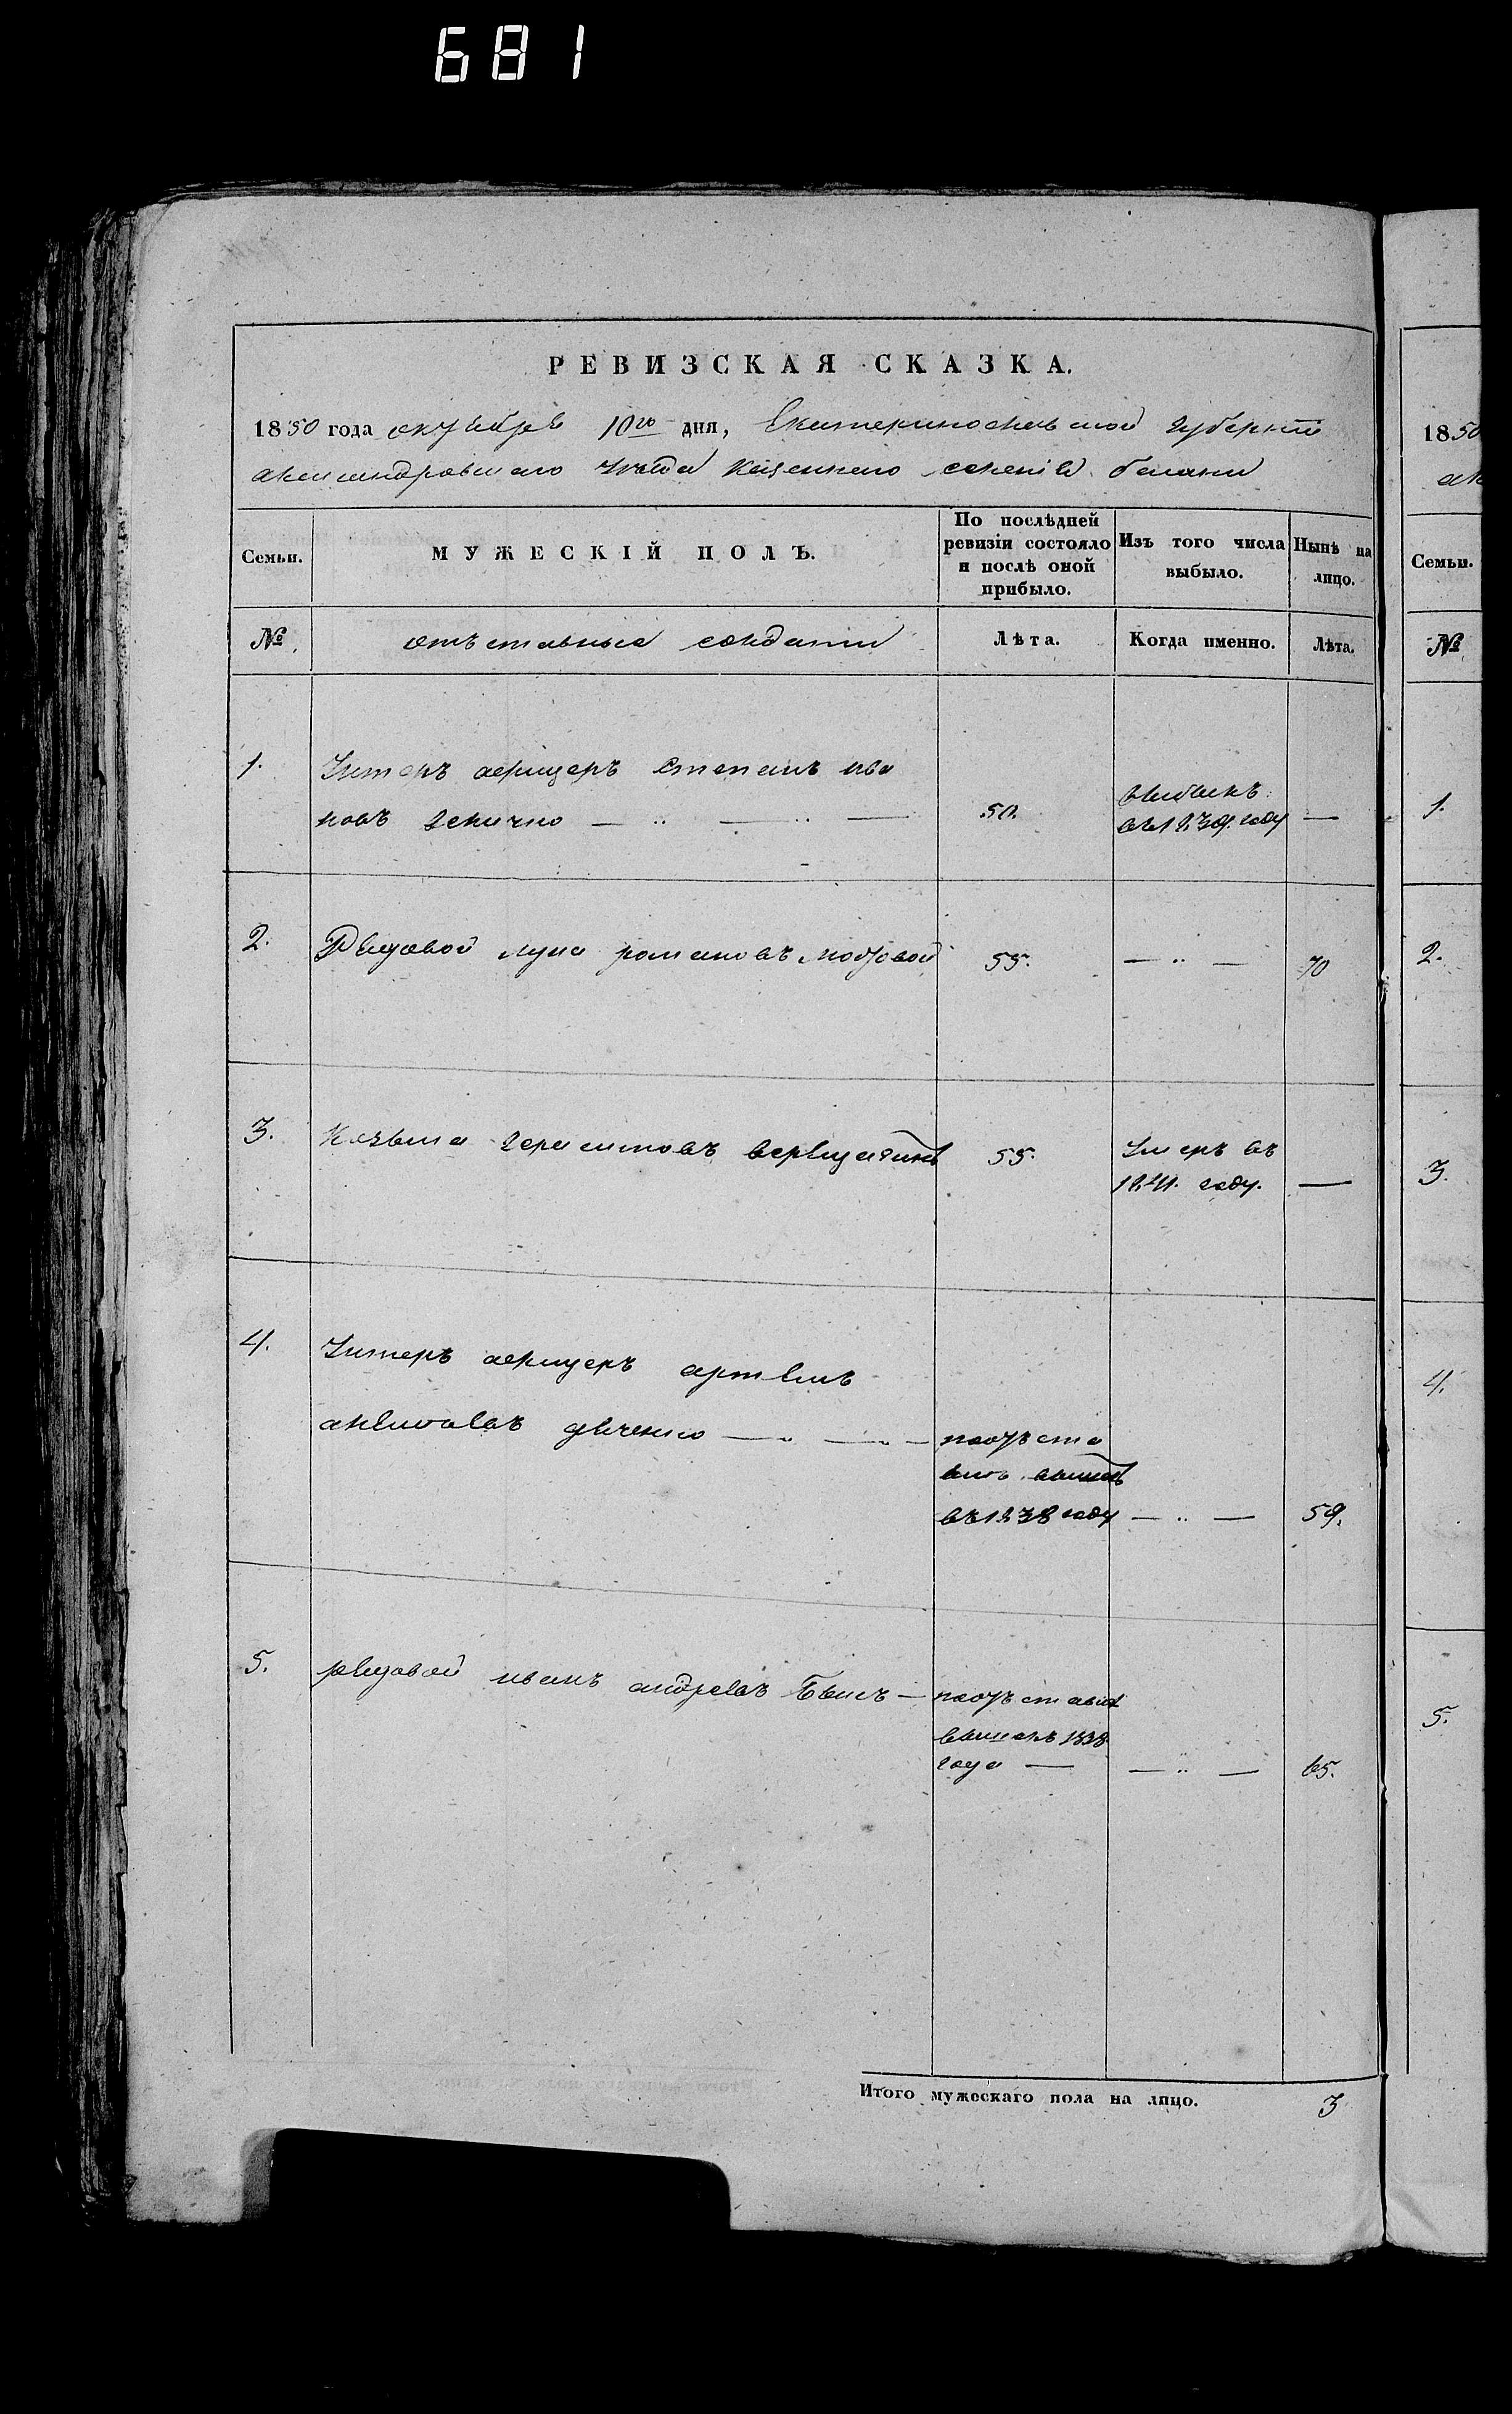 681
РЕВИЗСКАЯ СКАЗКА.
1850 года октября 10го дня, Екатеринославской губернии
александровскаго уѣзда казеннаго селенія белики
Семьи.
МУЖЕСКІЙ ПОЛЪ.
По послѣдней ревизіи состояло и послѣ оной прибыло.
Изъ того числа выбыло.
Нынѣ на лицо.
№
отъставные солдаты
Лѣта.
Когда именно.
Лѣта.
1.
Унтеръ аерицеръ Степанъ ива
новъ — .. — .. —
50.
выбылъ
въ 1839. году
—
2.
Рядовой лука романовъ мо
55.
— .. —
70
3.
Казьма герасимовъ
55.
Умеръ въ
1841. году.
—
4.
Унтеръ аерицеръ артемъ
дяченко — .. — .. —
поотъста
въ 1838 году
— .. —
59.
5.
рядовой иванъ андреевъ Быкъ —
поотъставке
1838
года —
— .. —
65.
Итого мужескаго пола на лицо.
3
1850
ал
Семьи.
№
1.
2.
3.
4.
5.